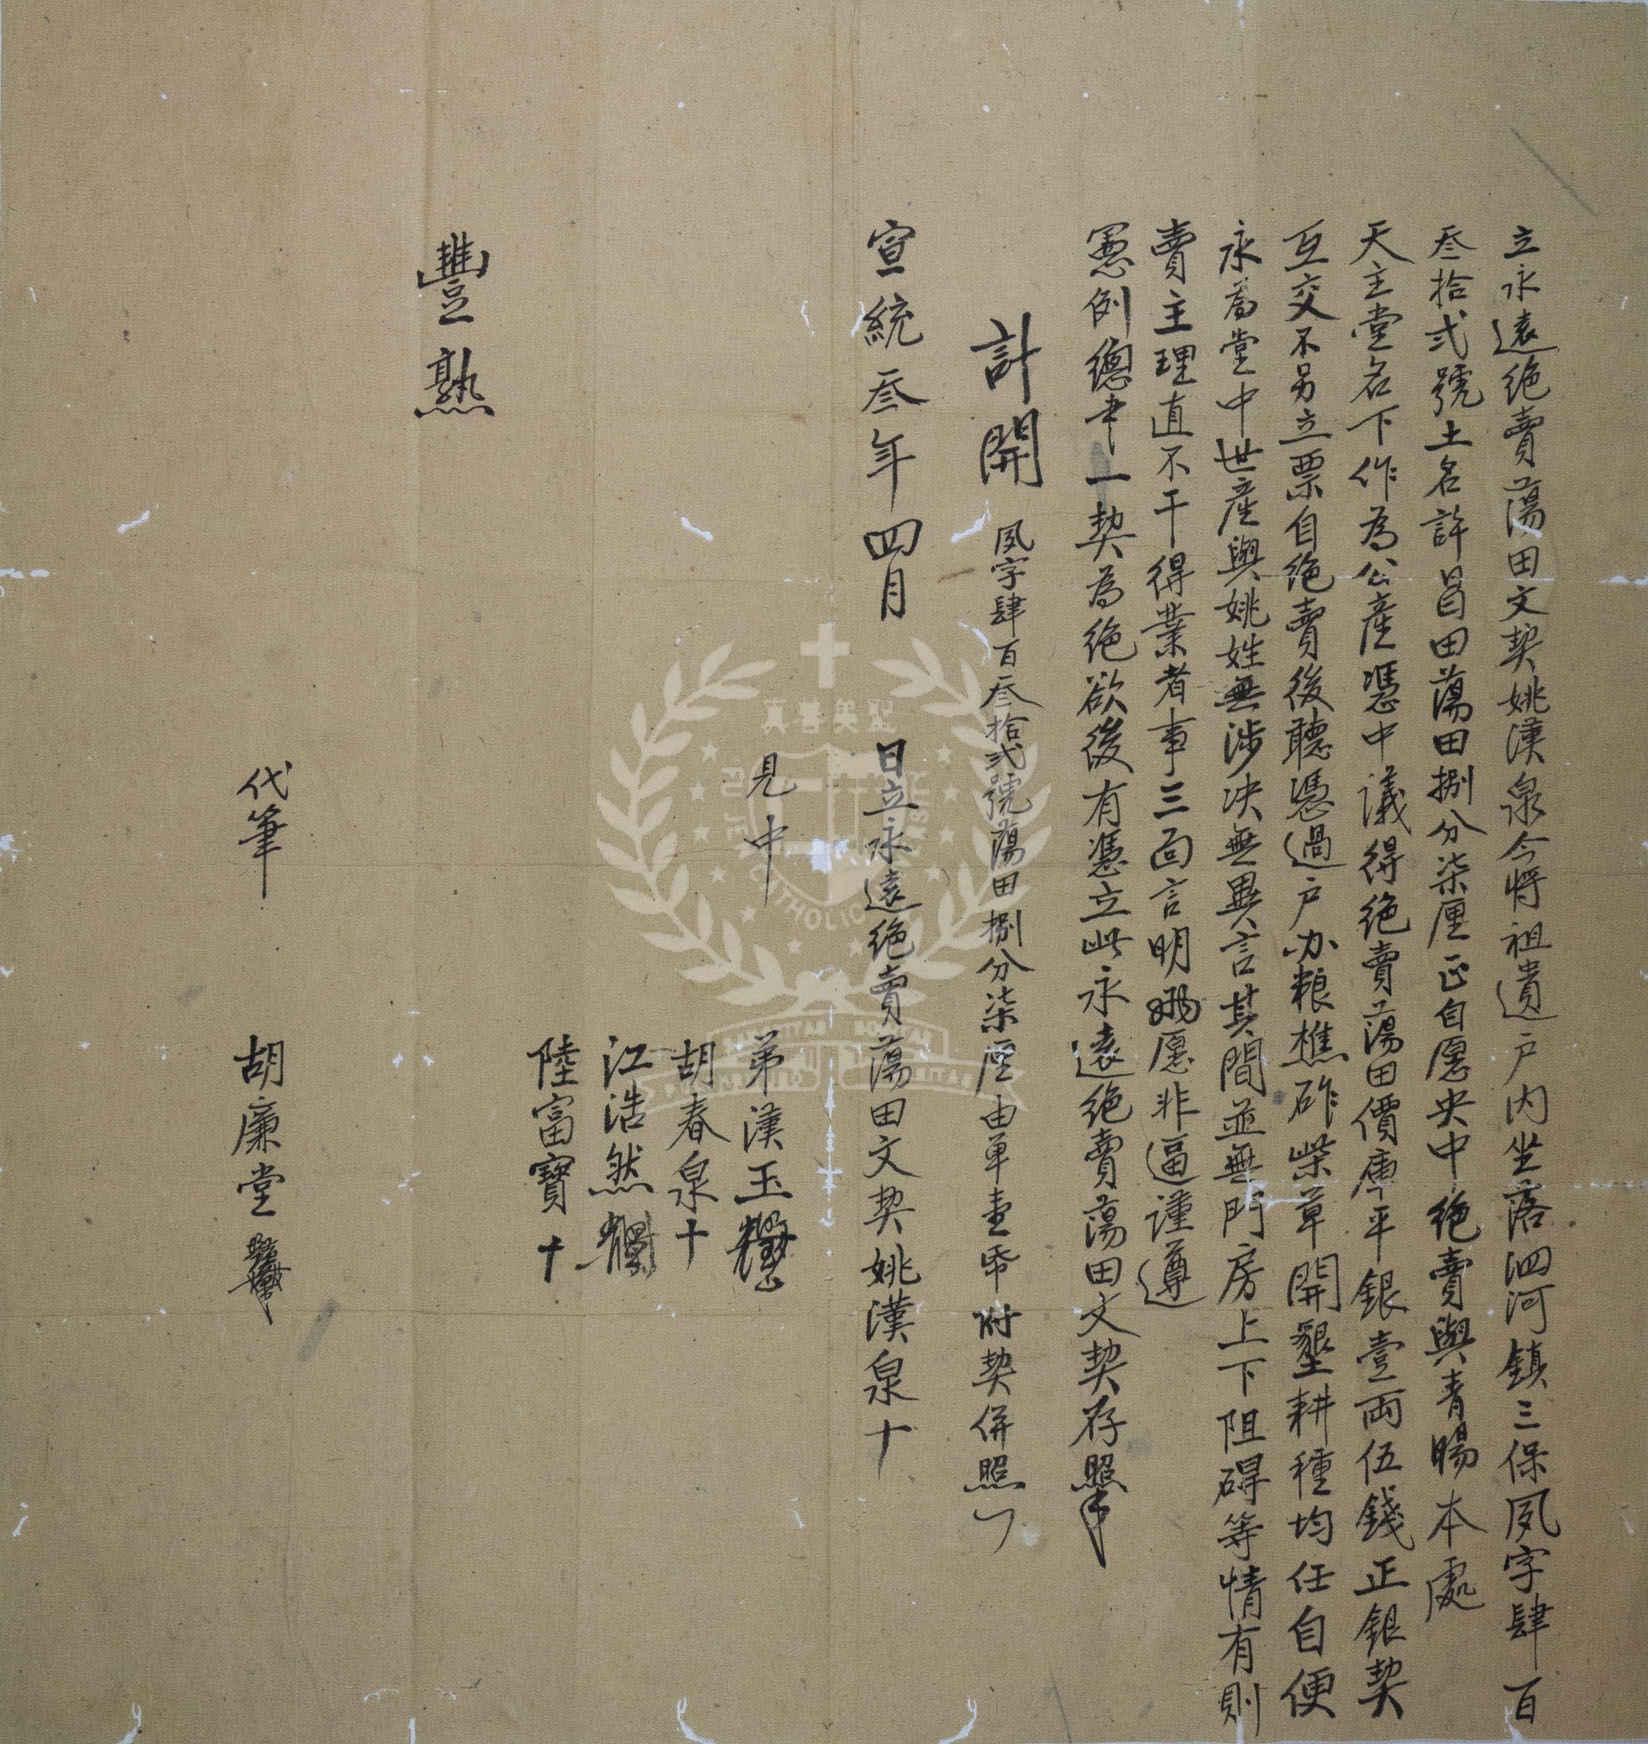 立永遠絶賣蕩田文契姚漢泉今將祖遺户内坐落泗河鎮三保夙字肆百
叁拾弍號土名許昌田蕩田捌分柒厘正自愿央中絶賣與青暘本處
天主堂名下作為公產憑中議得絶賣蕩田價庫平銀壹両伍錢正銀契
互交不另立票自絶賣後聽憑過户办粮樵斫柴草開墾耕種均任自便
永為堂中世産與姚姓無涉决無異言其間並無門房上下阻碍等情有則
賣主理直不干得業者事三面言明兩愿非逼謹遵
憲例總書一契為絶欲後有憑立此永遠絶賣蕩田文契存照
計開 夙字肆百叁拾弍號蕩田捌分柒厘由單壹帋附契併照
宣統叁年四月 日立永遠絶賣蕩田文契姚漢泉十
見中 弟漢玉
胡春泉十
江浩然
陸富寶十
豐熟
代筆 胡廉堂
真善美聖
CATHOLIC